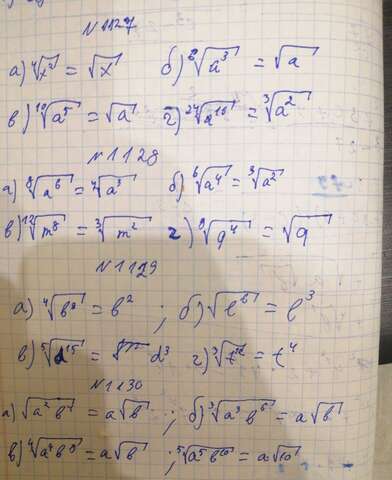 №1127
а) ⁴√x² = √x б) ⁶√a³ = √a
в) ¹⁰√a⁵ = √a г) ²⁴√a¹⁶ = ³√a²
№1128
а) ⁸√a⁶ = ⁴√a³ б) ⁶√a⁴ = ³√a²
в) ¹²√m⁸ = ³√m² г) ⁸√q⁴ = √q
№1129
а) ⁴√b⁸ = b² ; б) √l⁶ = l³
в) ⁵√d¹⁵ = d³ г) ³√t¹² = t⁴
№1130
а) √a²b⁴ = a√b ; б) ³√a³b⁶ = a√b
в) ⁴√a⁴b⁸ = a√b ; ⁵√a⁵b¹⁰ = a√10